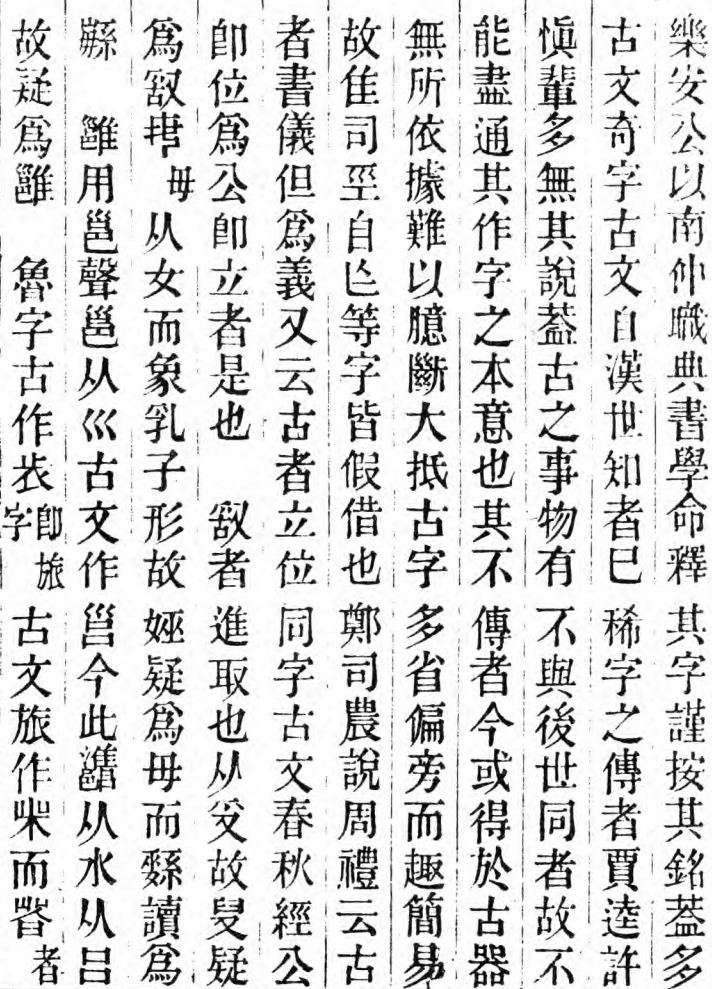 樂安公以南仲職典書學命釋其字謹按其銘蓋多
古文奇字古文自漢世知者已稀字之傳者賈逵許
愼輩多無其說蓋古之事物有不與後世同者故不
能盡通其作字之本意也其不傳者今或得於古器
無所依據難以臆斷大抵古字多省偏旁而趣簡易
故隹司坙自亾等字皆假借也鄭司農說周禮云古
者書儀但爲義又云古者立位同字古文春秋經公
卽位爲公卽立者是也 㪉者進取也从𠬪故𠬪疑
爲㪉 毋从女而象乳子形故娙疑爲毋而繇讀爲
繇 雝用邕聲邕从巛古文作邕今此灉从水从吕
故疑爲雝 魯字古作㫊卽旅字古文旅作㫊而者